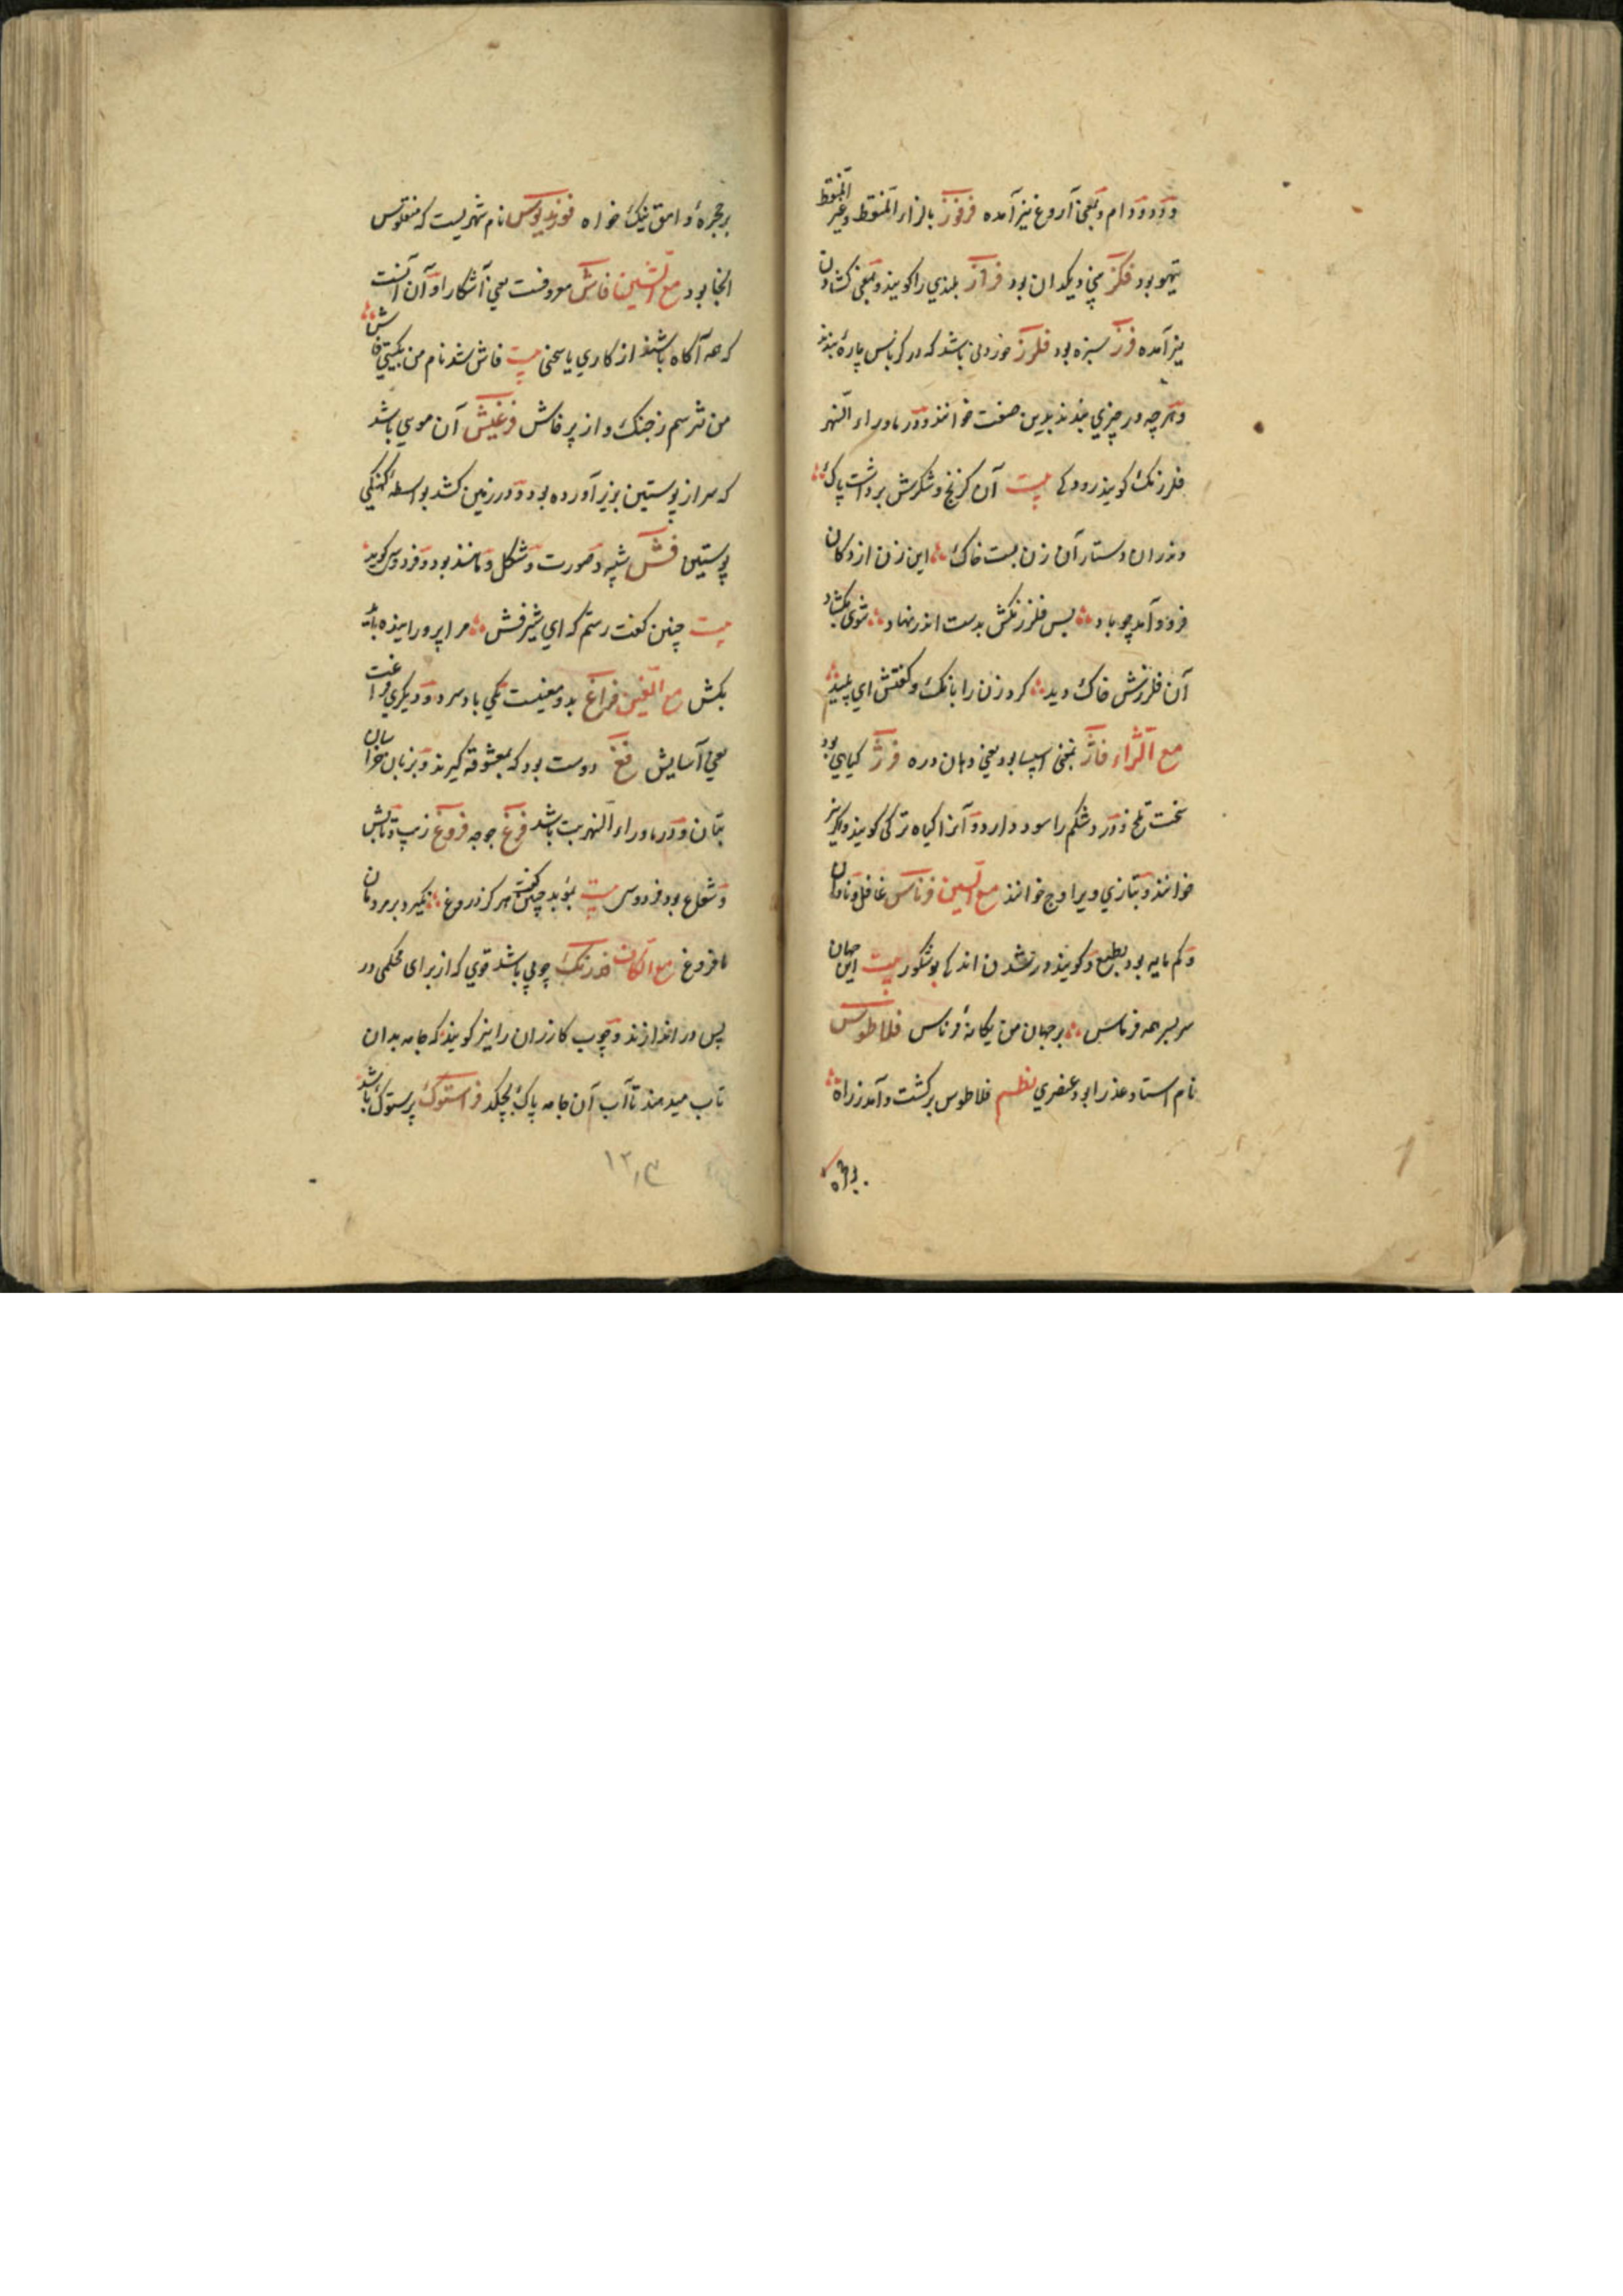 و دو و دام و بمعنی آروغ نیز آمده فرفوز بالزاء المنقط و غیر المنقط
تیهو بود فکز میخ دیکدان بود فراز بلندی را کویند و بمعنی کشادن
نیز آمده فرز سبزه بود فلرز خوردنی باشد که در کرباس پاره بندند
و هر چه در چیزی بندند بدین صفت خوانند و در ماوراء النهر
فلرزنک کویند رودکی بیت آن کرنج و شکرش برداشت پاک
وندران دستار آن زن بست خاک این زن از دکان
فرود آمد چو باد پس فلرزنکش بدست اندر نهاد شوی بکشاد
آن فلرزش خاک دید کرد زن را بانک و کفتش ای پلید
مع الژاء فاژ بمعنی اسپیا بود یعنی دهان دره فرژ کیاهی بود
سخت تلخ و درد شکم را سود دارد و آنرا کیاه ترکی کویند و اکر نیز
خوانند و بتازی ویرا وج خوانند مع السین فرناس غافل و نادان
و کم مایه بود بطبع و کویند در شدن اندکی بوشکور بیت این جهان
سربسر همه فرناس بر جهان من یکانه فرناس فلاطوس
نام استاد عذرا بود عنصری نظم فلاطوس برکشت و آمد ز راه
بر حجره وامق نیک خواه فوزیدیوس نام شهریست که منقلوس
آنجا بود مع الشین فاش معروفست یعنی آشکارا و آن آنست
که همه آکاه باشند از کاری یا سخنی بیت فاش شد نام من بکیتی فاش
من نترسم ز جنک و از پرفاش فرغیش آن موی باشد
که سر از پوستین بزیر آورده بود و در زمین کشد بواسطه کهنکی
پوستین فش شبه و صورت و شکل و مانند بود و فردوسی کوید
بیت چنین کفت رستم که ای شیرفش مرا پرورانیده باید
بکش مع الغین فراغ بدو معنیست یکی باد سرد و دیکری فراغت
یعنی آسایش فغ دوست بود که بمعشوقه کیرند و بزبان خراسان
بتان و در ماوراء النهر بت باشد فرغ جوجه فروغ زیب و تابش
و شعاع بود فردوسی بیت بموبد چنین کفت هرکز دروغ نکیرد بر مردمان
ما فروغ مع الکاف فدرنک چوبی باشد قوی که از برای محکمی در
پس در اندازند و چوب کازران را نیز کویند که جامه بدان
تاب میدهند تا آب آن جامه پاک بچکد فراستوک پرستوک باشد
بر حجره
۱۲٫۳